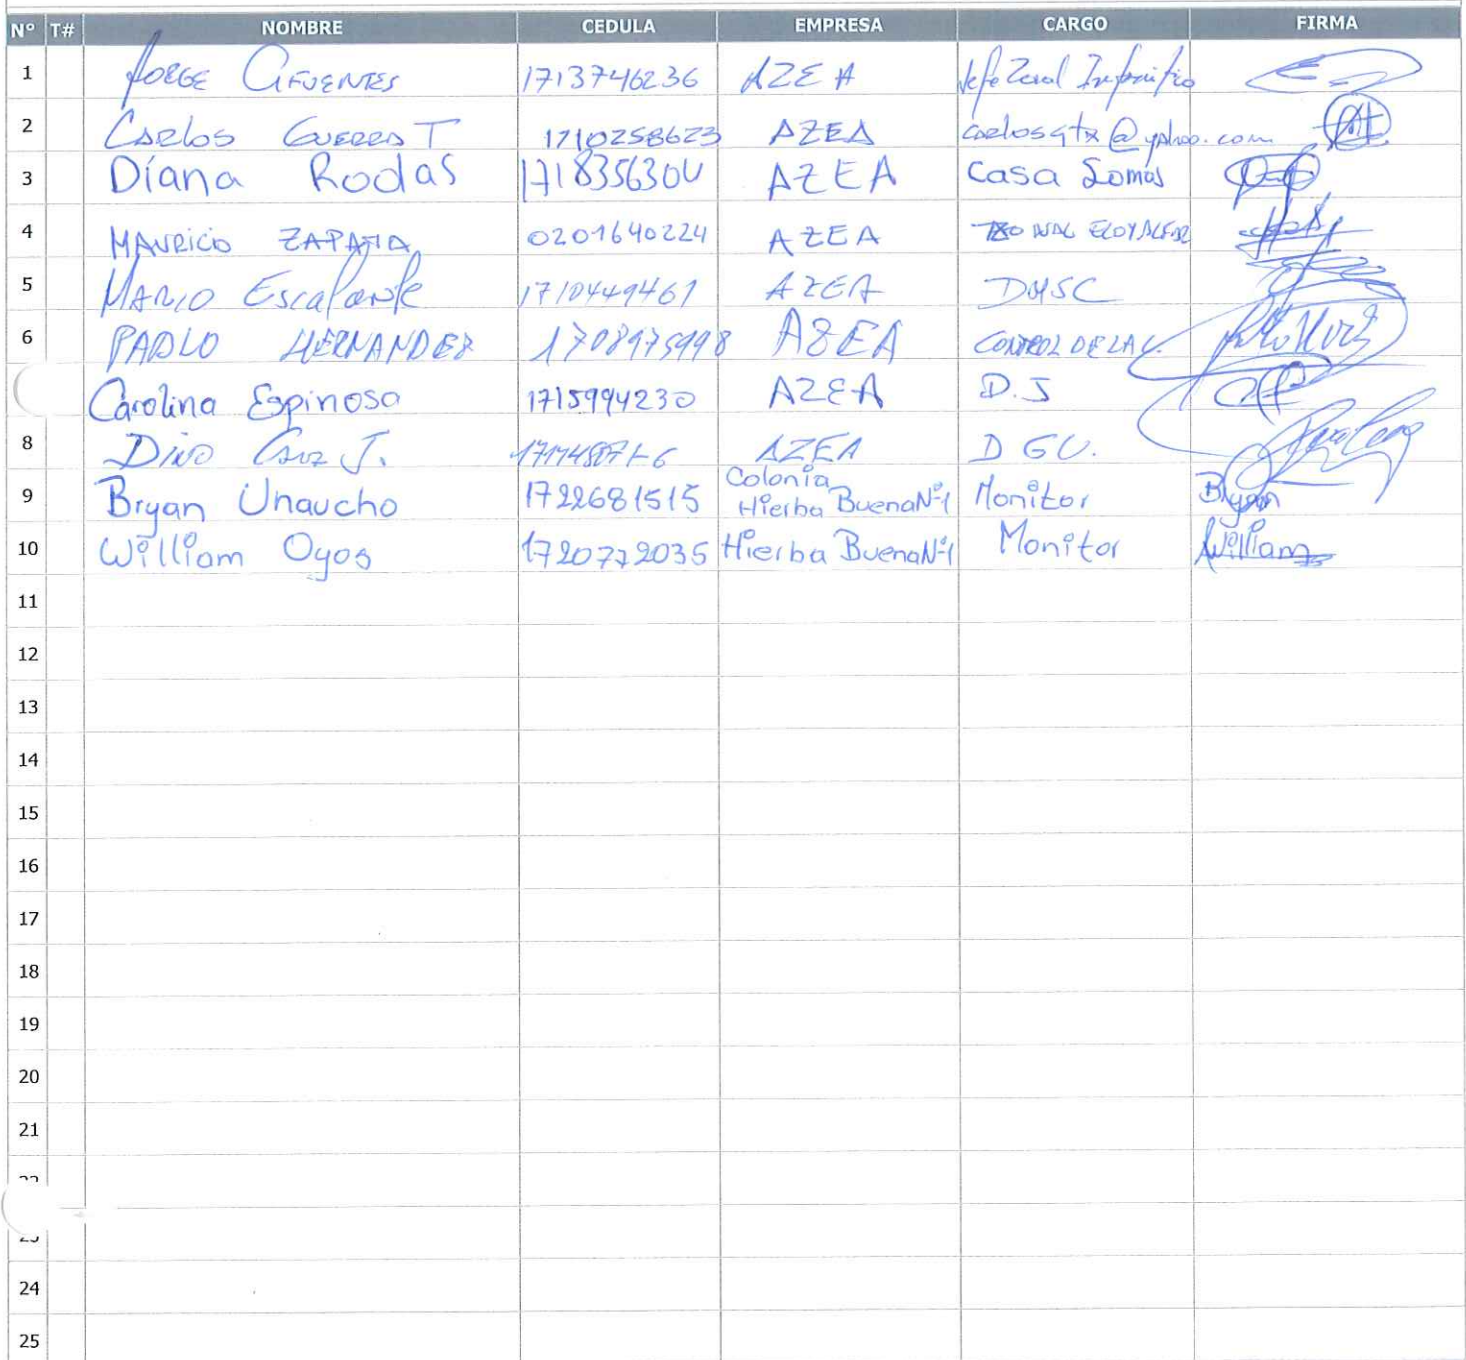 N° T# NOMBRE CEDULA EMPRESA CARGO FIRMA
1 JORGE CIFUENTES 1713746236 AZEA Jefe Zonal
2 CARLOS GUERRA T 1710258623 AZEA carlosgtx@yahoo.com
3 Diana Rodas 1718356304 AZEA Casa Somos
4 MAURICIO ZAPATA 0201640224 AZEA
5 MARIO Escalante 1710449461 AZEA DMSC
6 PABLO HERNANDEZ 1708975998 AZEA CONTROL DE LA C.
Carolina Espinosa 1715994230 AZEA D.J
8 DINO CRUZ J. AZEA DGU.
9 Bryan Unaucho 1722681515 Colonia Hierba Buena Nº1 Monitor Bryan
10 William Oyos 1720772035 Hierba Buena Nº1 Monitor William
11
12
13
14
15
16
17
18
19
20
21
24
25